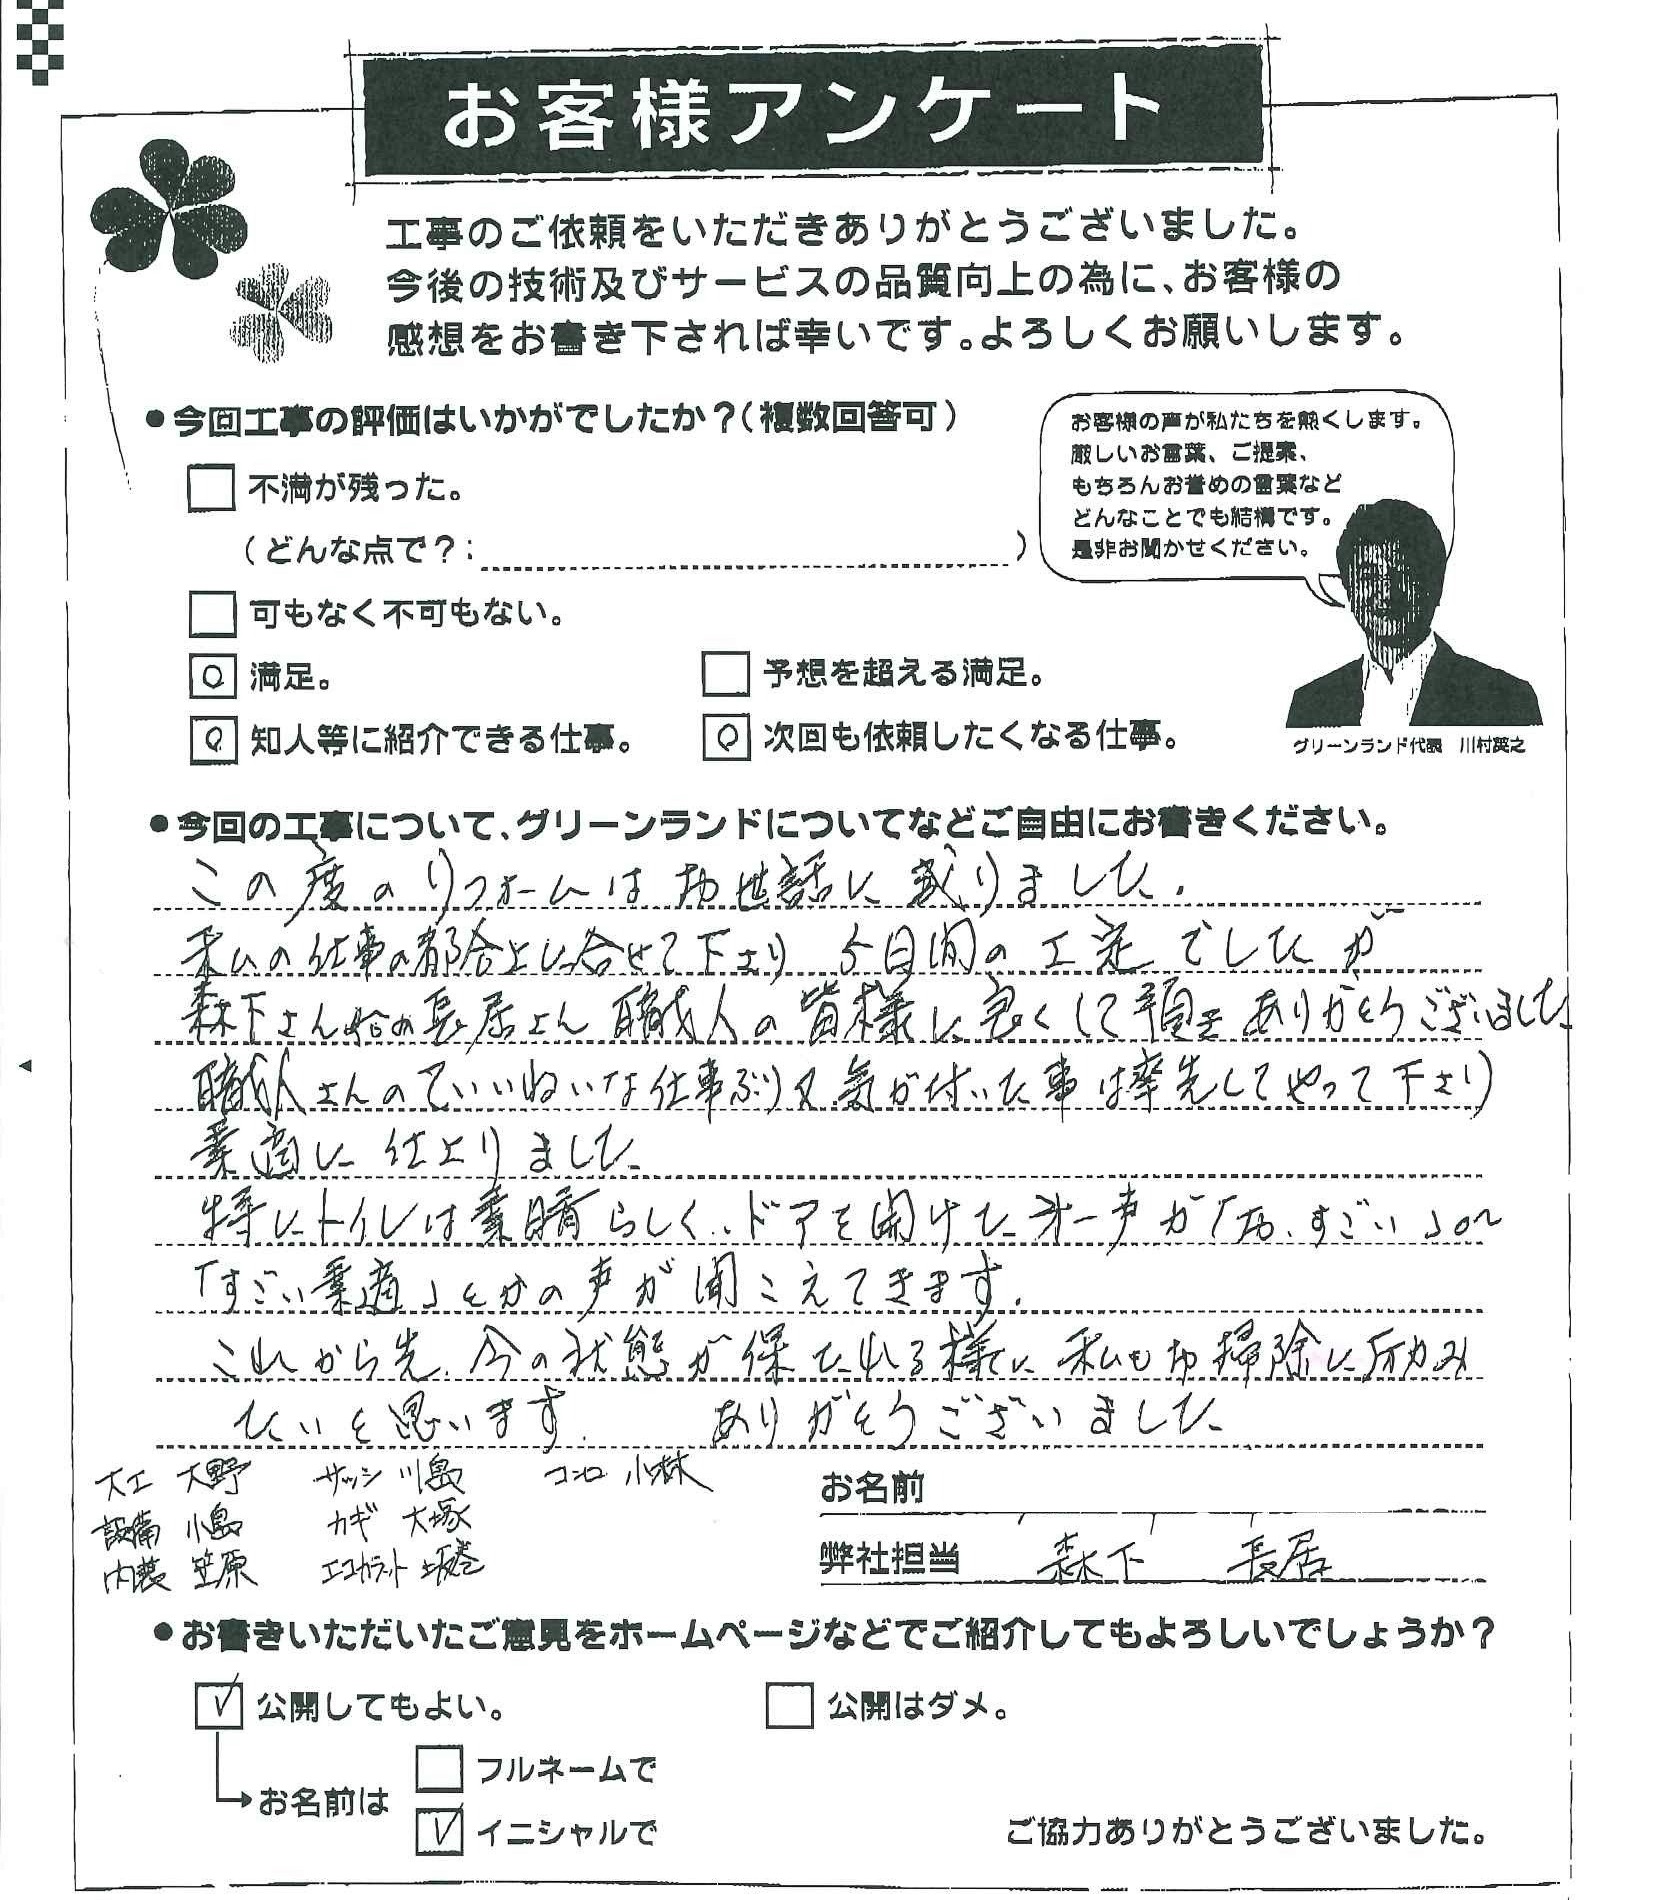 お客様アンケート
工事のご依頼をいただきありがとうございました。
今後の技術及びサービスの品質向上の為に、お客様の
感想をお書き下されば幸いです。よろしくお願いします。
●今回工事の評価はいかがでしたか?(複数回答可)
お客様の声が私たちを熱くします。
厳しいお言葉、ご提案、
もちろんお誉めの言葉など
どんなことでも結構です。
是非お聞かせください。
不満が残った。
(どんな点で?: )
可もなく不可もない。
○ 満足。
予想を超える満足。
○ 知人等に紹介できる仕事。
○ 次回も依頼したくなる仕事。
グリーンランド代表 川村英之
●今回の工事について、グリーンランドについてなどご自由にお書きください。
この度のリフォームはお世話に成りました.
私の仕事の都合上に合せて下さり 5日間の工定でしたが
森下さん始め長居さん 職人の皆様に良くして頂き ありがとうございました
職人さんのていいねいな仕事ぶり又気が付いた事は率先してやって下さり
素適に仕上りました
特にトイレは素晴らしく..ドアを開けた才一声が「お、すごい」
「すごい素適」とかの声が聞こえてきます.
これから先、今の状態が保たれる様に 私もお掃除に
たいと思います. ありがとうございました
大工 大野 サッシ 川島 コンロ 小林
設備 小島 カギ 大塚
内装 笠原 エコカラット 坂巻
お名前
弊社担当 森下 長居
●お書きいただいたご意見をホームページなどでご紹介してもよろしいでしょうか?
✓ 公開してもよい。
公開はダメ。
→お名前は
フルネームで
✓ イニシャルで
ご協力ありがとうございました。